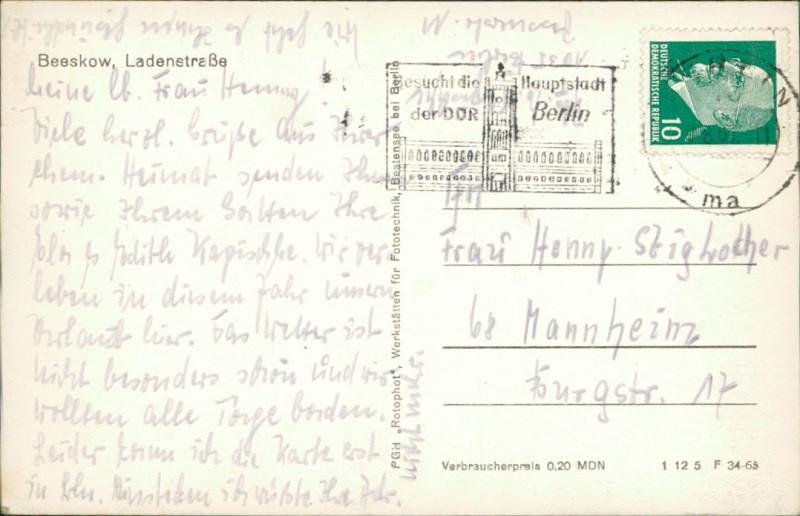 Beeskow, Ladenstraße
Meine lb. Frau Henny!
Viele herzl. Grüße aus Ihrer
ehem. Heimat senden Ihnen
sowie Ihrem Gatten Ihre
Edith
leben in diesem Jahr unsern
Urlaub hier. Das Wetter ist
nicht besonders schön und wir
wollten alle Tage baden.
Leider kann ich die Karte erst
in Bln. einstecken ich wußte Ihre Adr.
nicht mehr.
PGH „Rotophot", Werkstätten für Fototechnik, Bestensee bei Berlin
Besucht die Hauptstadt
der DDR Berlin
DEUTSCHE
DEMOKRATISCHE REPUBLIK
10
ma
Frau Henny
68 Mannheim
Burgstr. 17
Verbraucherpreis 0,20 MDN 1 12 5 F 34-65